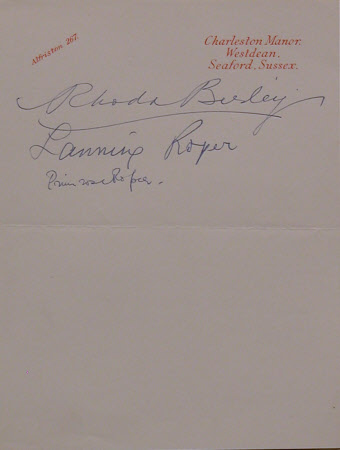 Alfriston 267.
Charleston Manor.
Westdean.
Seaford. Sussex.
Rhoda Birley
Lanning Roper
Primrose Roper.